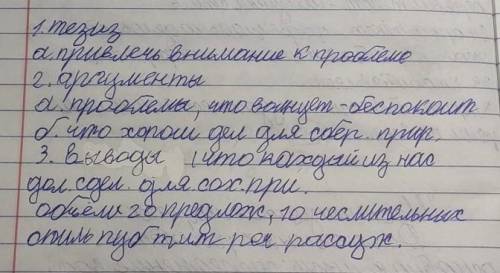 1. тезиз
а. привлечь внимание к проблеме
2. аргументы
а. проблемы, что волнует - беспокоит
б. что хорош дел для сбер. прир.
3. Выводы (что каждый из нас
дол. сдел. для сох. при.
объём 20 предлож, 10 числительных
стиль публ тип реч рассуж.